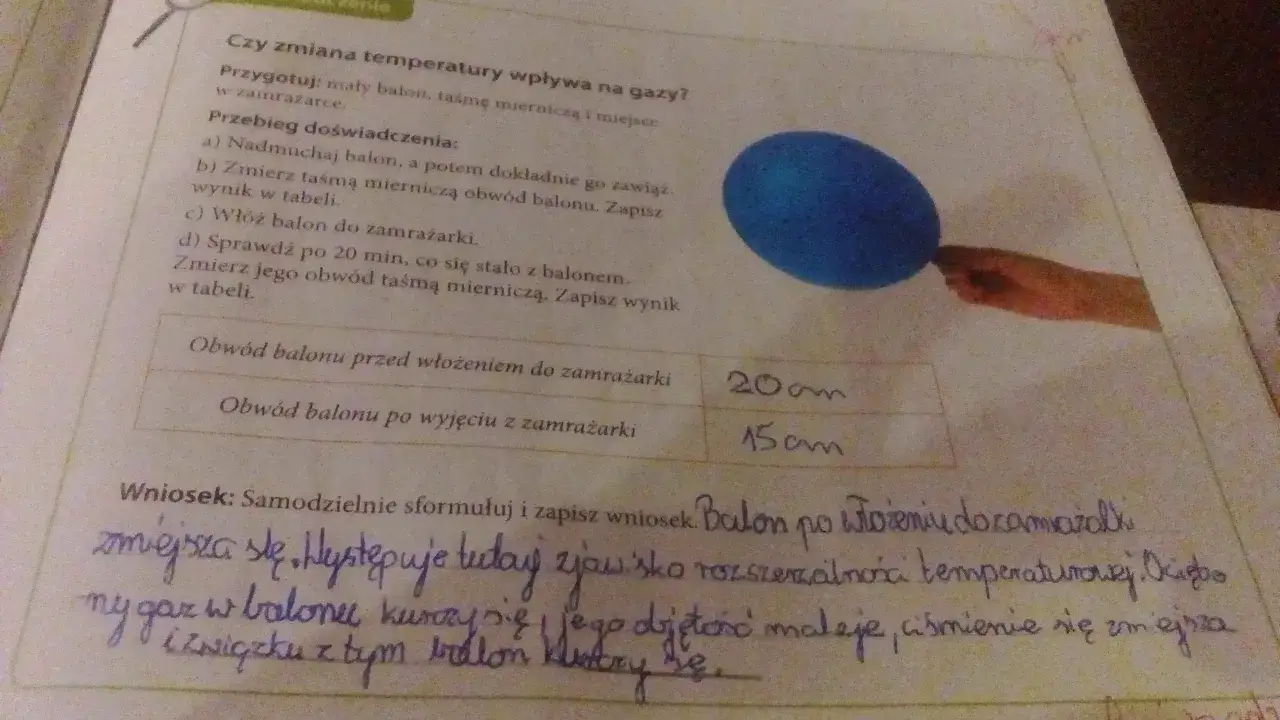 Czy zmiana temperatury wpływa na gazy?
Przygotuj: mały balon, taśmę mierniczą i miejsce
w zamrażarce.
Przebieg doświadczenia:
a) Nadmuchaj balon, a potem dokładnie go zawiąż.
b) Zmierz taśmą mierniczą obwód balonu. Zapisz
wynik w tabeli.
c) Włóż balon do zamrażarki.
d) Sprawdź po 20 min, co się stało z balonem.
Zmierz jego obwód taśmą mierniczą. Zapisz wynik
w tabeli.
Obwód balonu przed włożeniem do zamrażarki 20 cm
Obwód balonu po wyjęciu z zamrażarki 15 cm
Wniosek: Samodzielnie sformułuj i zapisz wniosek. Balon po włożeniu do zamrażalki
zmiejsza się. Występuje tutaj zjawisko rozszerzalności temperaturowej. Oziębio
ny gaz w balonu kurczy się, jego objętość maleje, ciśnienie się zmiejsza
i związku z tym balon kurczy się.